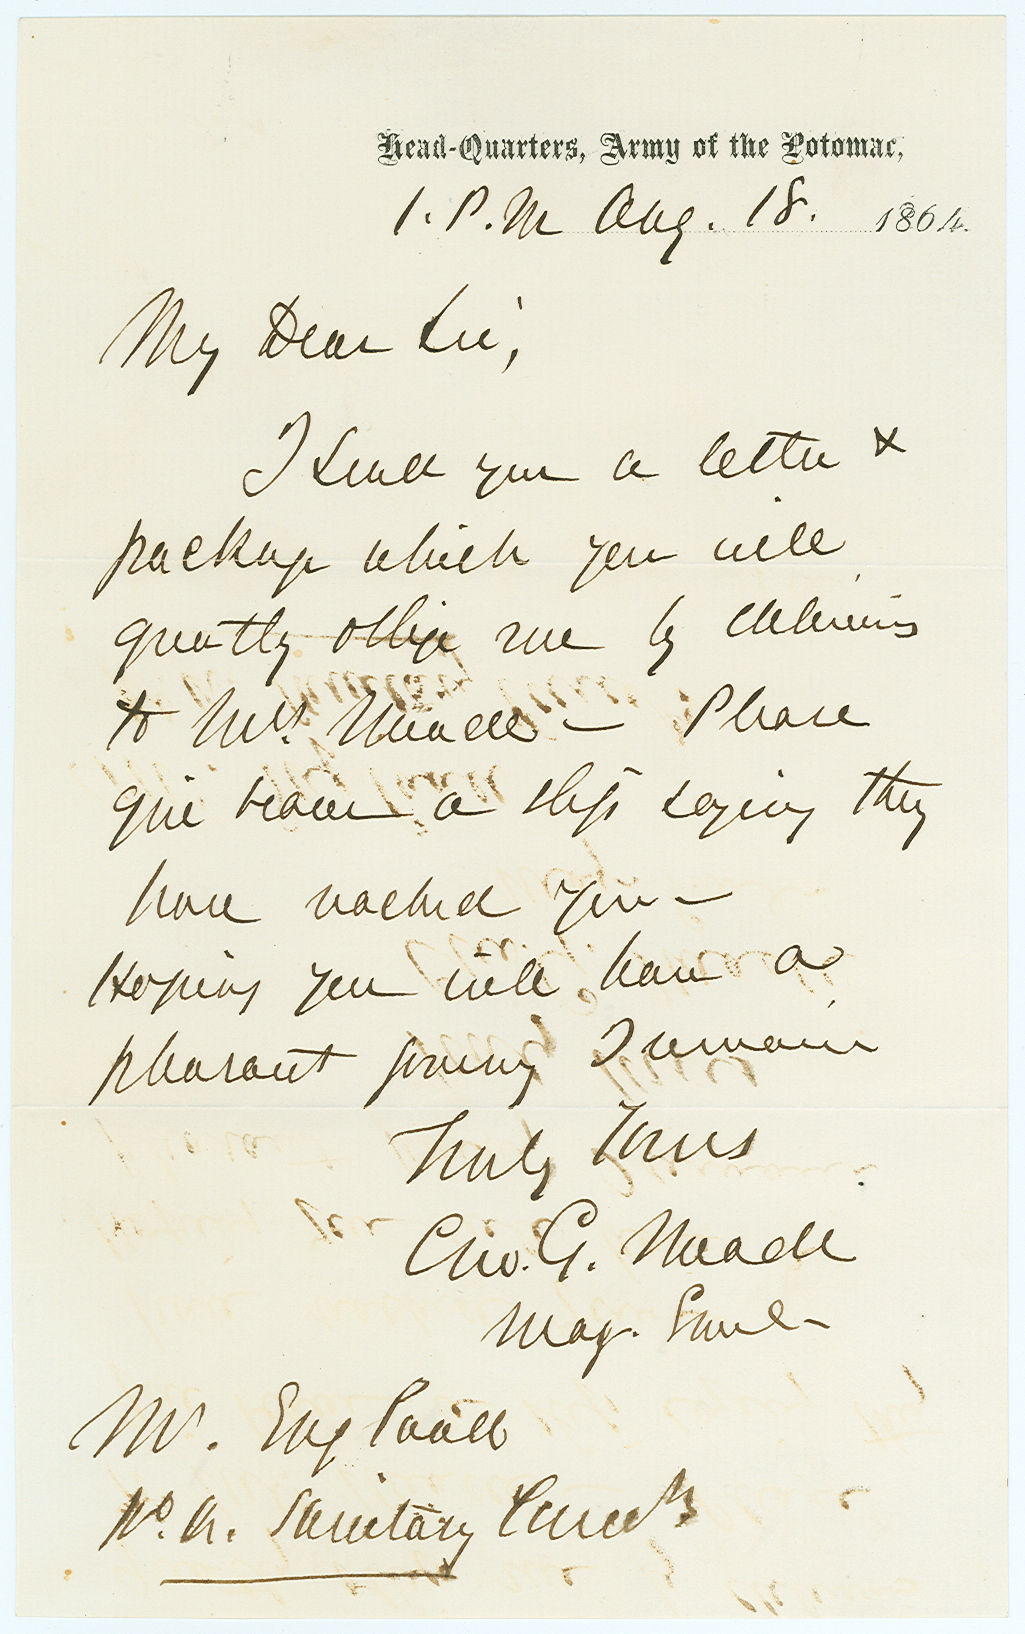 Head-Quarters, Army of the Potomac,
1. P. M Aug. 18. 1864.
My Dear Sir,
I send you a letter &
package which you will
greatly oblige me by delivering
to Mrs. Meade — Please
give bearer a slip saying they
have reached you —
Hoping you will have a
pleasant journey I remain
Truly Yours
Geo. G. Meade
Maj. Genl —
Mr. England
Sanitary Comn